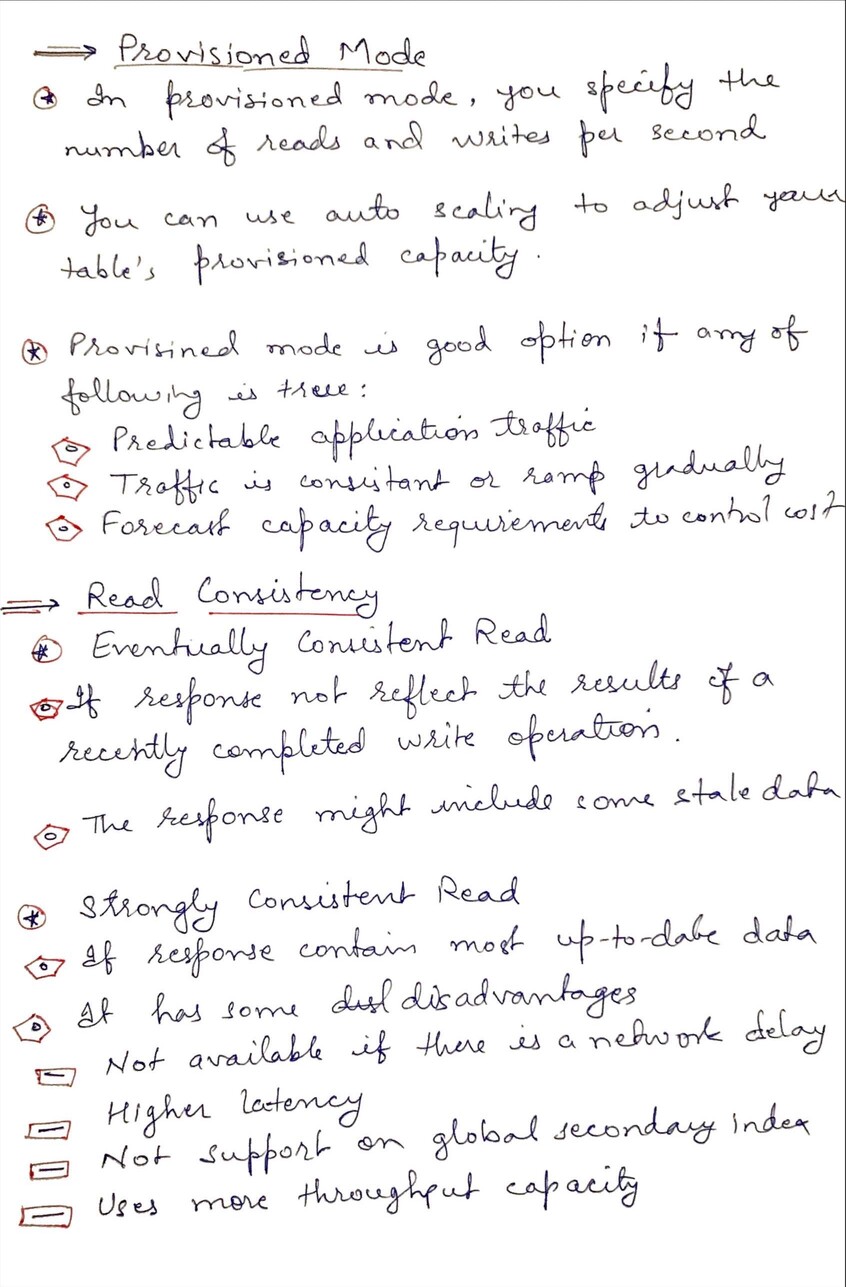 Provisioned Mode
In provisioned mode, you specify the
number of reads and writes per second
You can use auto scaling to adjust your
table's provisioned capacity.
Provisined mode is good option if any of
following is true:
Predictable application traffic
Traffic is consistant or ramp gradually
Forecast capacity requirements to control cost
Read Consistency
Eventually Consistent Read
If response not reflect the results of a
recently completed write operation.
The response might include some stale data
Strongly Consistent Read
If response contain most up-to-date data
It has some disadvantages
Not available if there is a network delay
Higher latency
Not support on global secondary index
Uses more throughput capacity